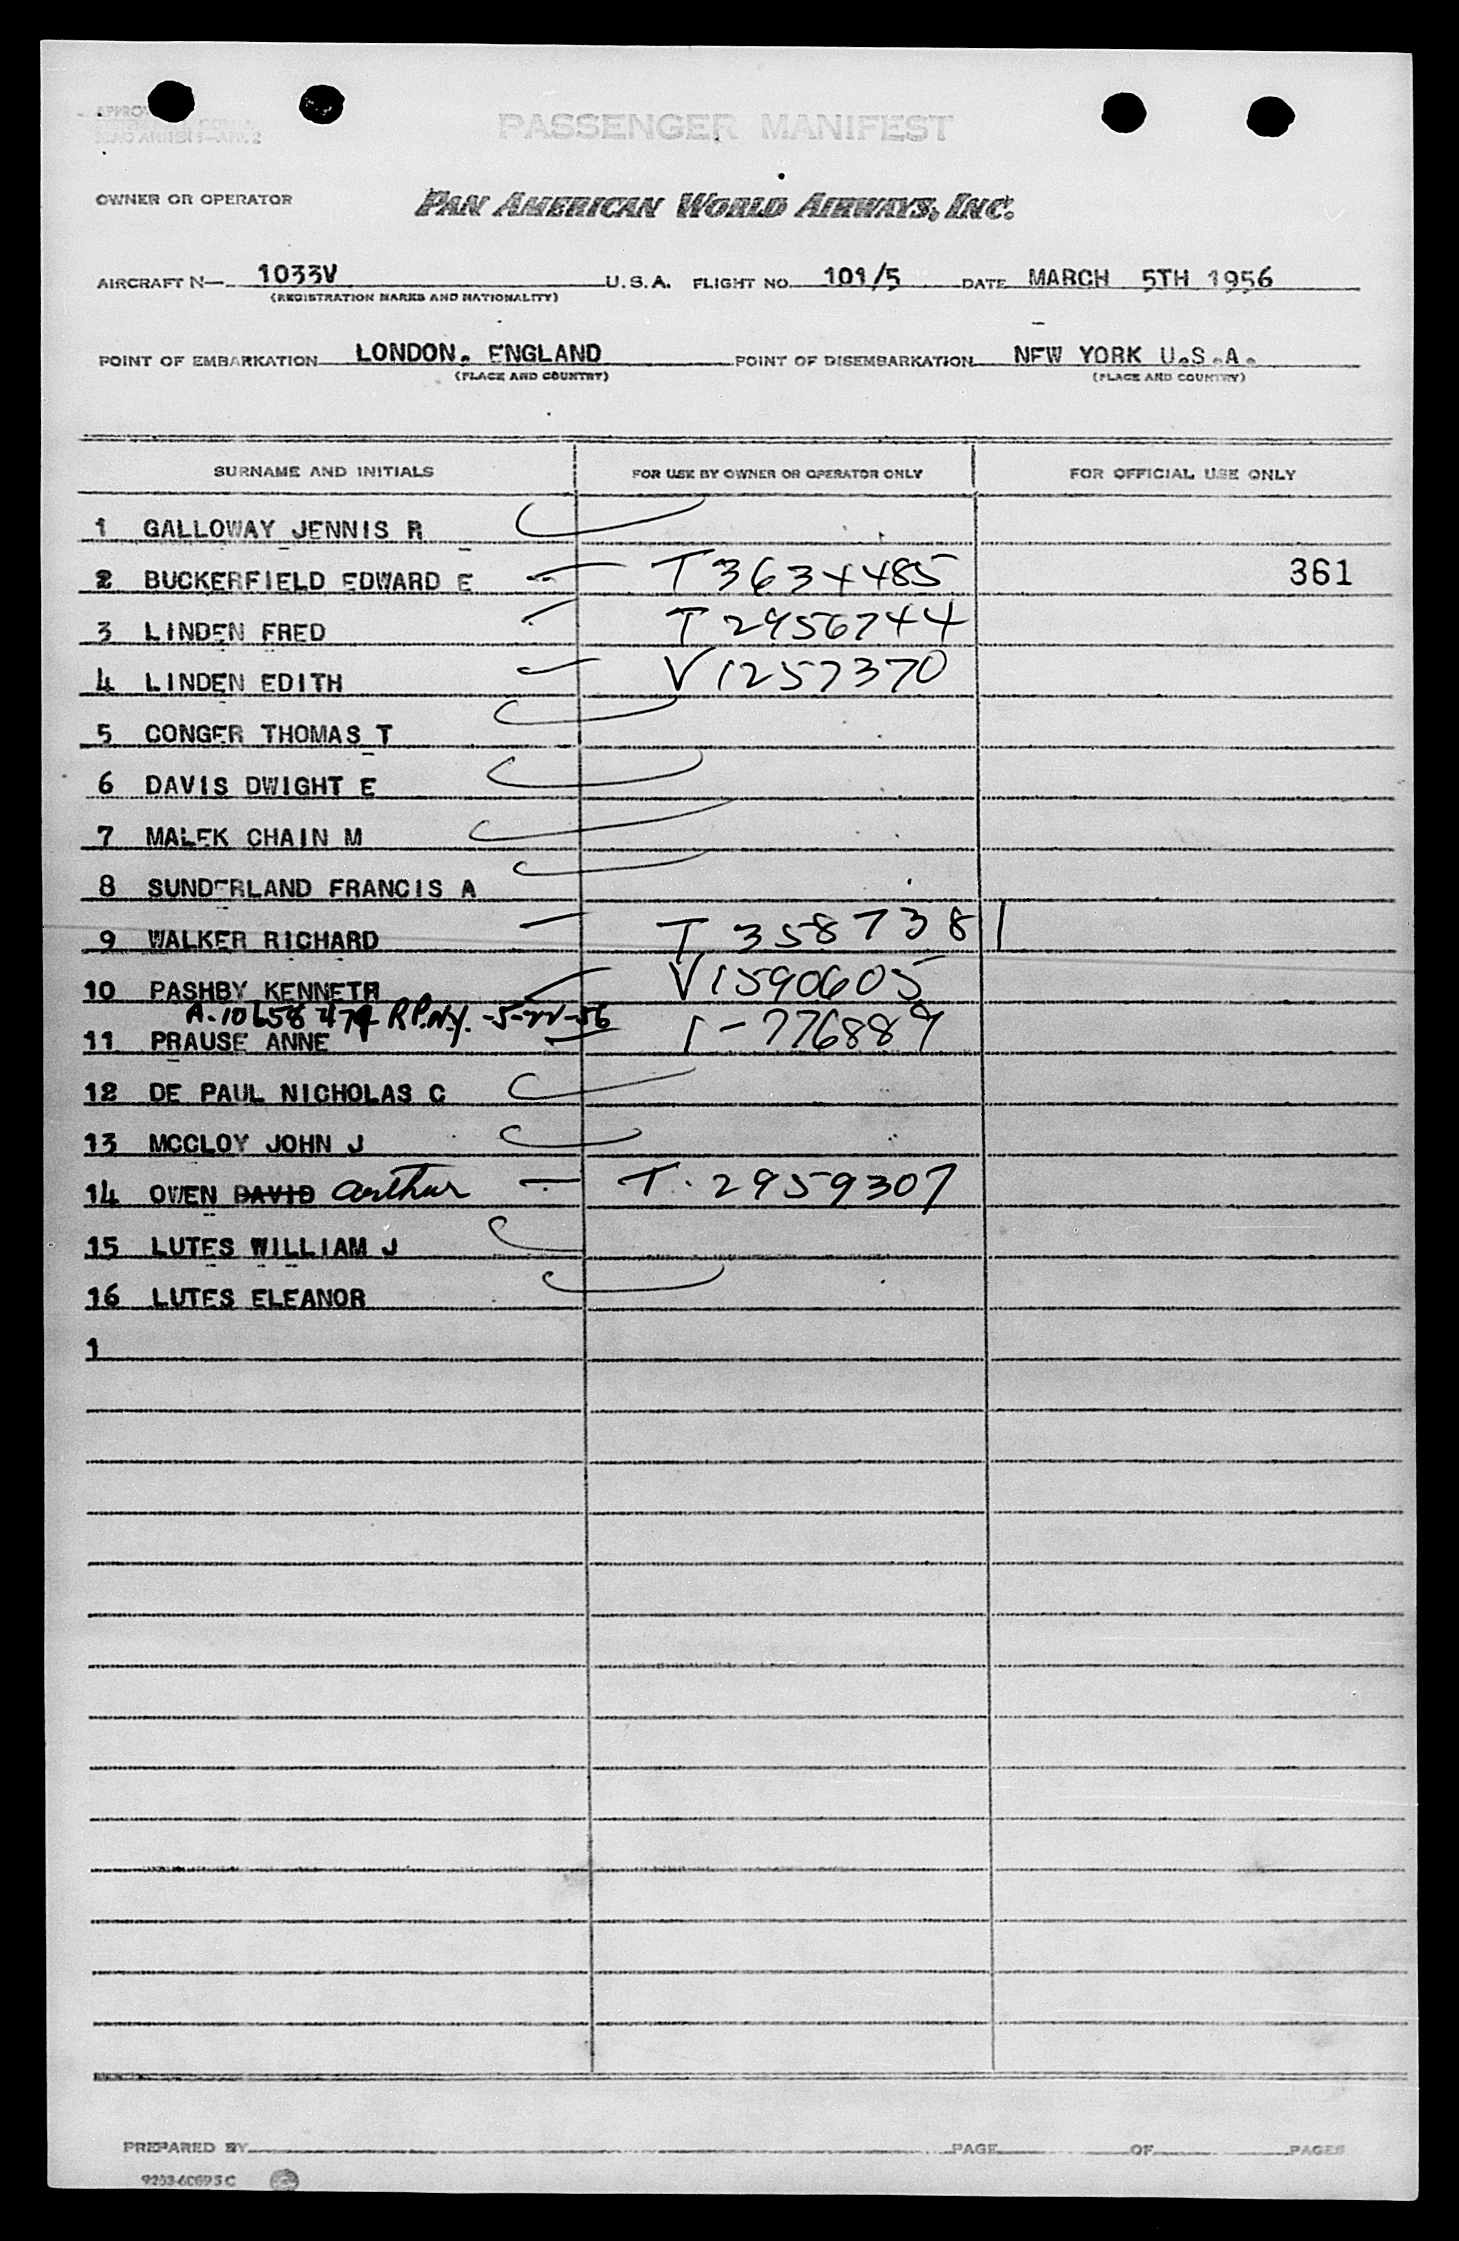 PASSENGER MANIFEST
OWNER OR OPERATOR PAN AMERICAN WORLD AIRWAYS, INC.
AIRCRAFT N— 1033V U.S.A. FLIGHT NO. 101/5 DATE MARCH 5TH 1956
(REGISTRATION MARKS AND NATIONALITY)
POINT OF EMBARKATION LONDON. ENGLAND POINT OF DISEMBARKATION NEW YORK U.S.A.
(PLACE AND COUNTRY) (PLACE AND COUNTRY)
SURNAME AND INITIALS FOR USE BY OWNER OR OPERATOR ONLY FOR OFFICIAL USE ONLY
1 GALLOWAY JENNIS R
2 BUCKERFIELD EDWARD E T3634485 361
3 LINDEN FRED T2956744
4 LINDEN EDITH V1257370
5 CONGER THOMAS T
6 DAVIS DWIGHT E
7 MALEK CHAIN M
8 SUNDERLAND FRANCIS A
9 WALKER RICHARD T3587381
10 PASHBY KENNETH V1590605
A-10658 474 R.P.N.Y. -5-22-56
11 PRAUSE ANNE I-776889
12 DE PAUL NICHOLAS C
13 MCCLOY JOHN J
14 OWEN DAVID Arthur T-2959307
15 LUTES WILLIAM J
16 LUTES ELEANOR
1
PREPARED BY PAGE OF PAGES